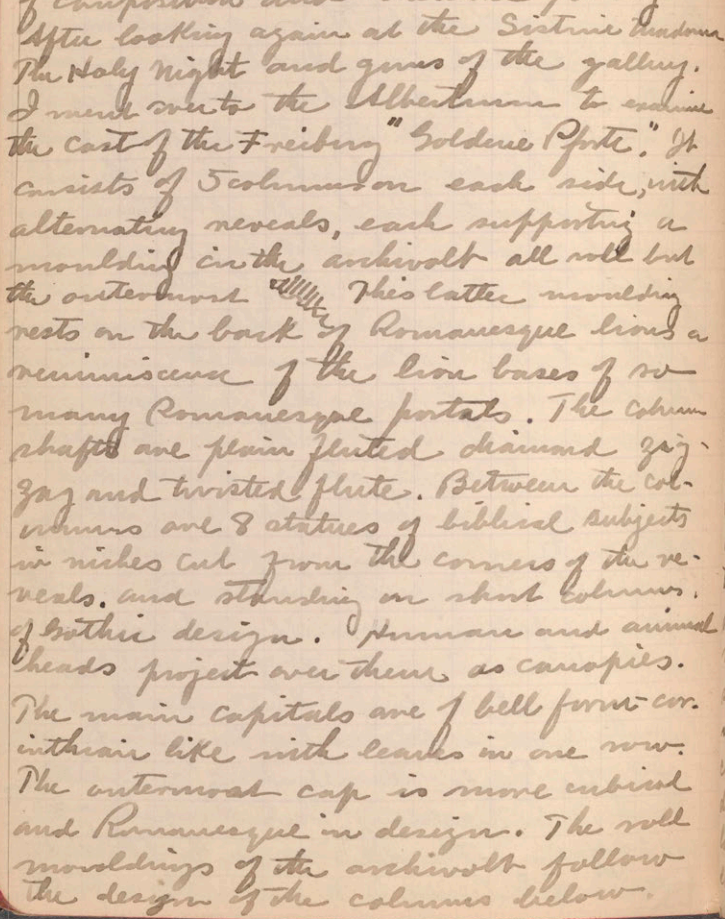 After looking again at the Sistine Madonna
The Holy Night and gems of the gallery.
I went over to the Albertinum to examine
the cast of the Freiberg "Goldene Pforte". It
consists of 5 columns on each side, with
alternating reveals, each supporting a
moulding in the archivolt all roll but
the outermost This latter moulding
rests on the back of Romanesque lions a
reminiscence of the lion bases of so
many Romanesque portals. The column
shafts are plain fluted diamond zig-
zag and twisted flute. Between the col-
umns are 8 statues of biblical subjects
in niches cut from the corners of the re-
veals. and standing on short columns.
of Gothic design. Human and animal
heads project over them as canopies.
The main capitals are of bell form - cor-
inthian like with leaves in one row.
The outermost cap is more cubical
and Romanesque in design. The roll
mouldings of the archivolt follow
the design of the columns below.